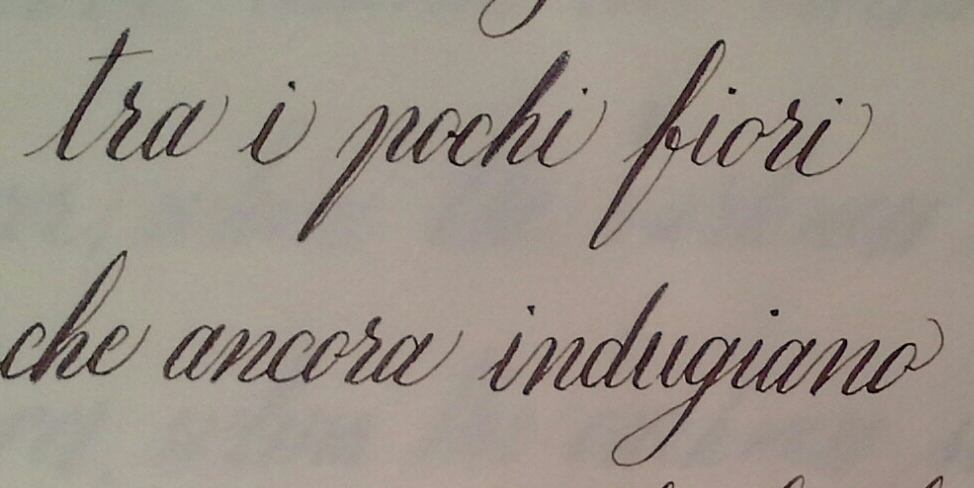 tra i pochi fiori
che ancora indugiano